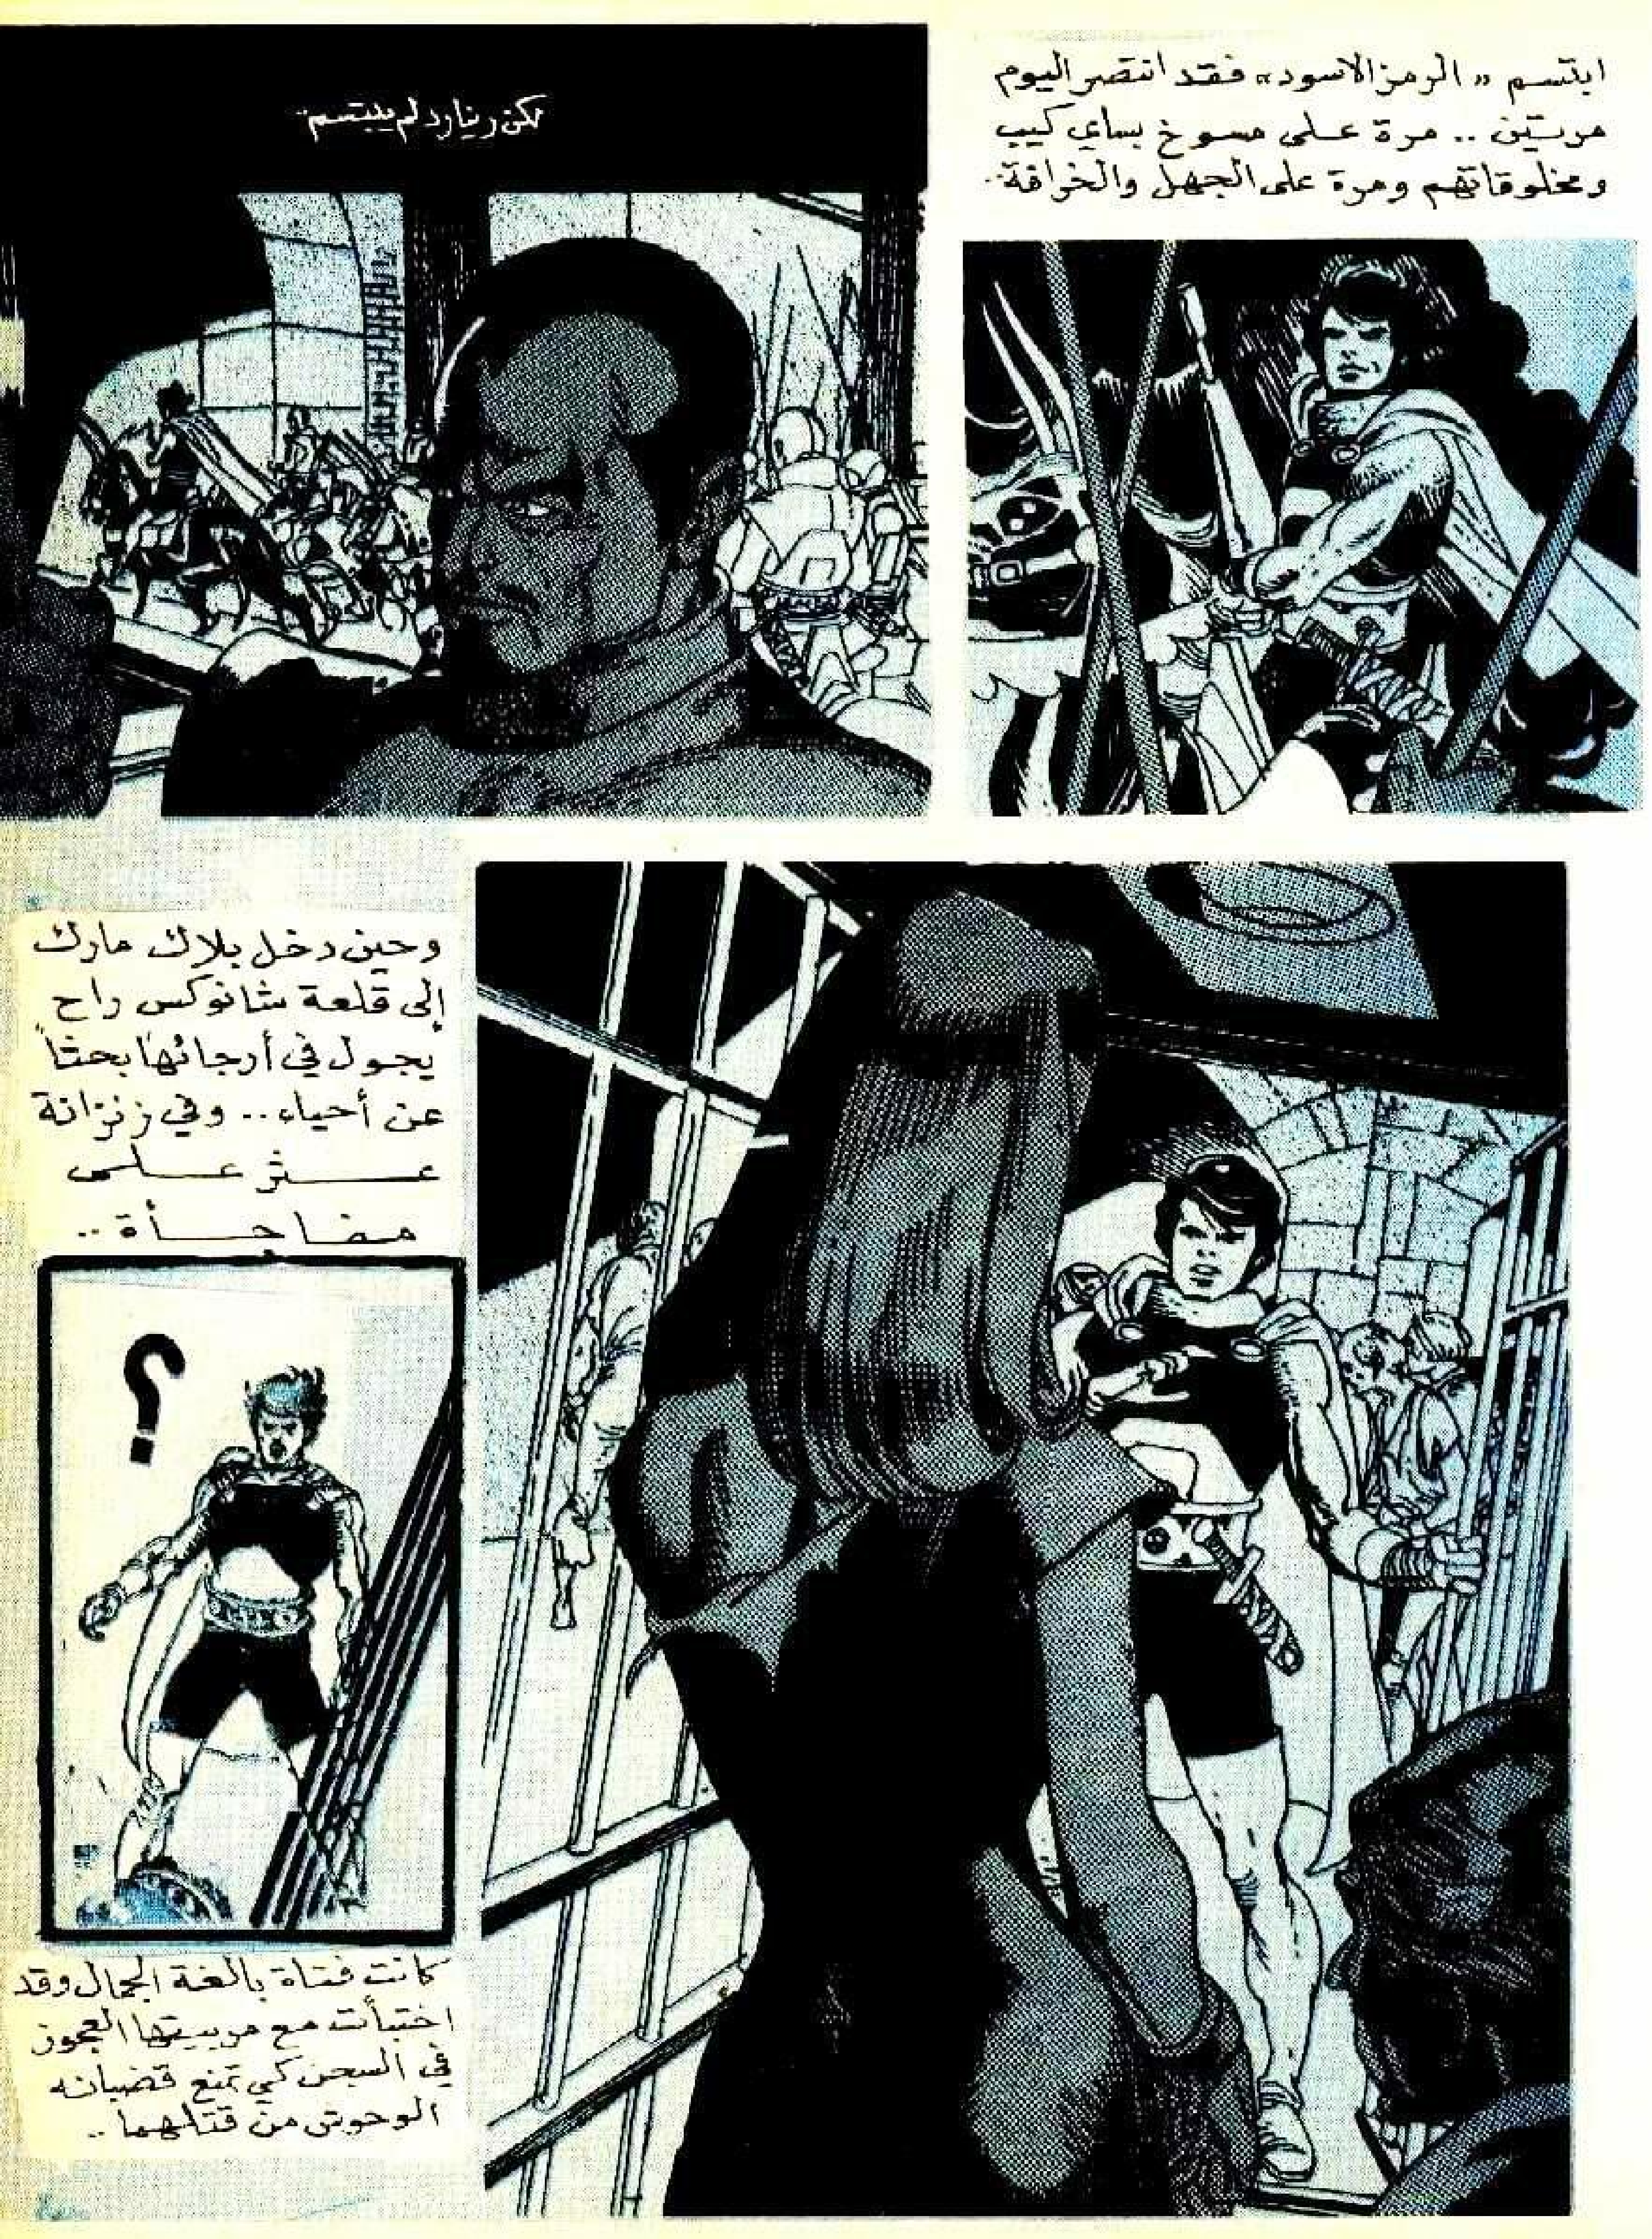 ابتسم «الرمز الاسود» فقد انتصر اليوم
مرتين .. مرة على مسوخ بساي كيب
ومخلوقاتهم ومرة على الجهل والخرافة..
لكن رينارد لم يبتسم..
وحين دخل بلاك مارك
إلى قلعة شانوكس راح
يجول في أرجائها بحثاً
عن أحياء.. وفي زنزانة
عثر على
مفاجأة..
؟
كانت فتاة بالغة الجمال وقد
اختبأت مع مربيتها العجوز
في السجن كي تمنع قضبانه
الوحوش من قتلهما..